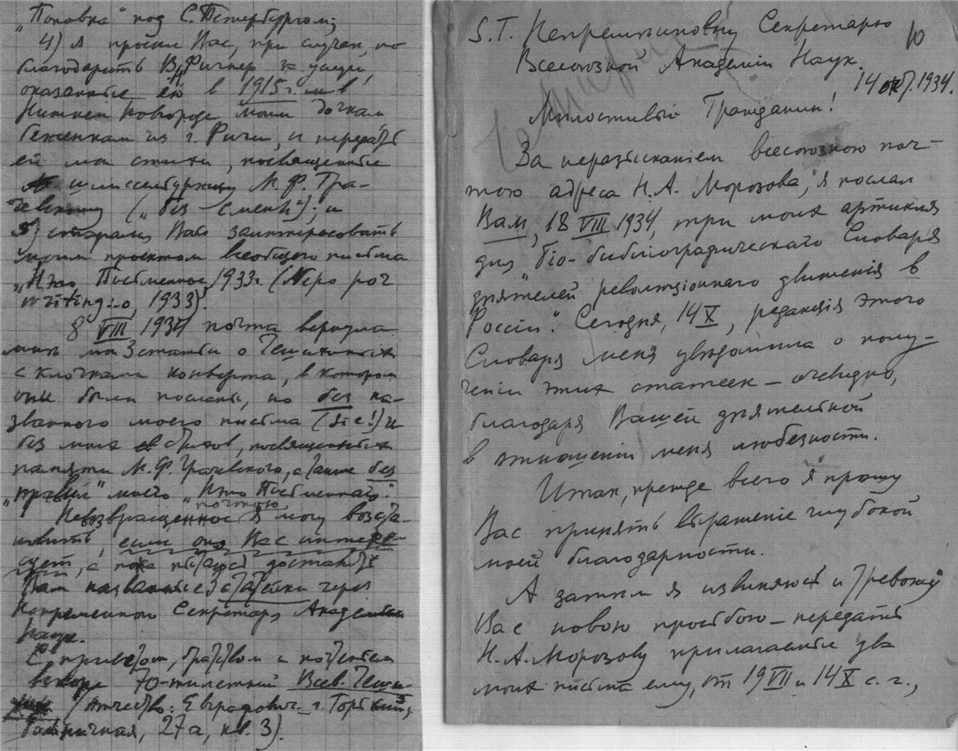 "Поповка" под С. Петербургом;
4) я просил Вас, при случае, по
благодарить В. Фигнер за услуги,
оказанные ею в 1915 г. в
Нижнем Новгороде моим дочкам
беженкам из г. Риги, и передать
ей мои стихи, посвященные
шлиссельбуржцу М. Ф. Гра-
чевскому ("без смены"); и
5) старался Вас заинтересовать
моим проектом всеобщего письма
1933 г.
writing, 1933).
8 VIII 1934 почта вернула
мне мои 3 статьи о
с клочками конверта, в котором
они были посланы, но без на-
званного моего письма (sic!) и
без моих стихов, посвященных
памяти М. Ф. Грачевского, а также без
"правил" моего
Невозвращенное почтою я могу возста-
новить, если оно Вас интере-
сует, а пока пытаюсь доставить
Вам названные статейки через
Непременного Секретаря Академии
Наук.
С приветом,
70-тилетний Всев.
Отчество: г.
Больничная, 27а, кв. 3).
10
S. T. Непременному Секретарю
Всесоюзной Академии Наук.
14 окт. 1934.
Милостивый Гражданин!
За неразысканием всесоюзною поч-
тою адреса Н. А. Морозова, я послал
Вам, 18 VIII 1934, три моих артикля
для "био-библиографическаго Словаря
деятелей революционного движенія в
Россіи". Сегодня, 14 X, редакція этого
Словаря меня уведомила о полу-
ченіи этих статеек — очевидно,
благодаря Вашей деятельной
в отношеніи меня любезности.
Итак, прежде всего я прошу
Вас принять выраженіе глубокой
моей благодарности.
А затем я извиняюсь и тревожу
Вас новою просьбою — передать
Н. А. Морозову прилагаемые два
моих письма ему, от 19 VIII и 14 X с. г.,